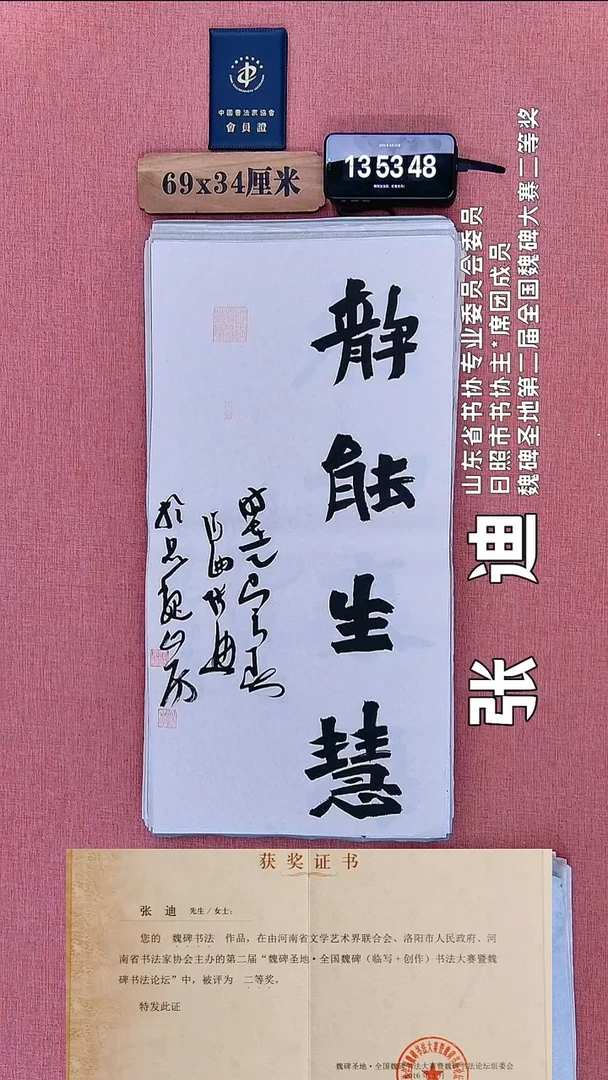 中國書法家協會
會員證
69x34厘米
13 53 48
山东省书协专业委员会委员
日照市书协主*席团成员
魏碑圣地第二届全国魏碑大赛二等奖
张 迪
静能生慧
获奖证书
张 迪 先生/女士：
您的 魏碑书法 作品，在由河南省文学艺术界联合会、洛阳市人民政府、河
南省书法家协会主办的第二届“魏碑圣地·全国魏碑（临写+创作）书法大赛暨魏
碑书法论坛”中，被评为 二等奖。
特发此证
魏碑圣地·全国魏碑书法大赛暨魏碑书法论坛组委会